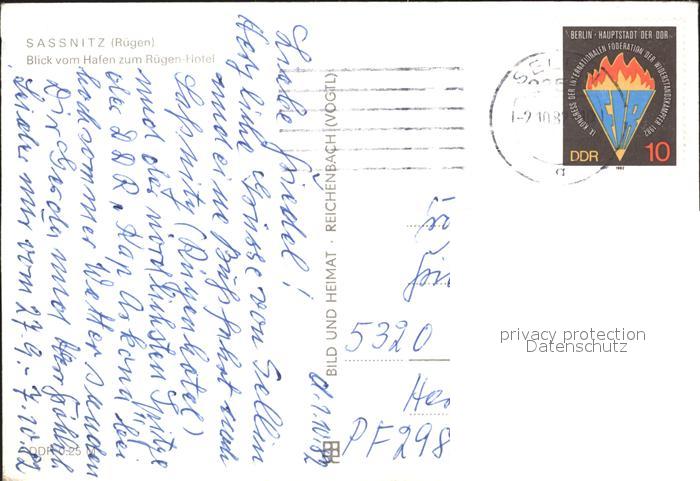 SASSNITZ (Rügen)
Blick vom Hafen zum Rügen-Hotel
DDR 0.25 M
d. 1.10.82
Liebe Friedel!
Herzliche Grüsse von Sellin
und eine Busfahrt nach
Saßnitz (Rügenhotel)
und der nördlichsten Spitze
der DDR, Kap Arkona bei
hochsommer Wetter senden
Dir Gerda und
wir vom 27.9. - 7.10.82
BILD UND HEIMAT · REICHENBACH (VOGTL)
BERLIN · HAUPTSTADT DER DDR
IX. KONGRESS DER INTERNATIONALEN FÖDERATION DER WIDERSTANDSKÄMPFER 1982
FIR
DDR 10
1982
-2.10.8
a
5320
PF 298
privacy protection
Datenschutz